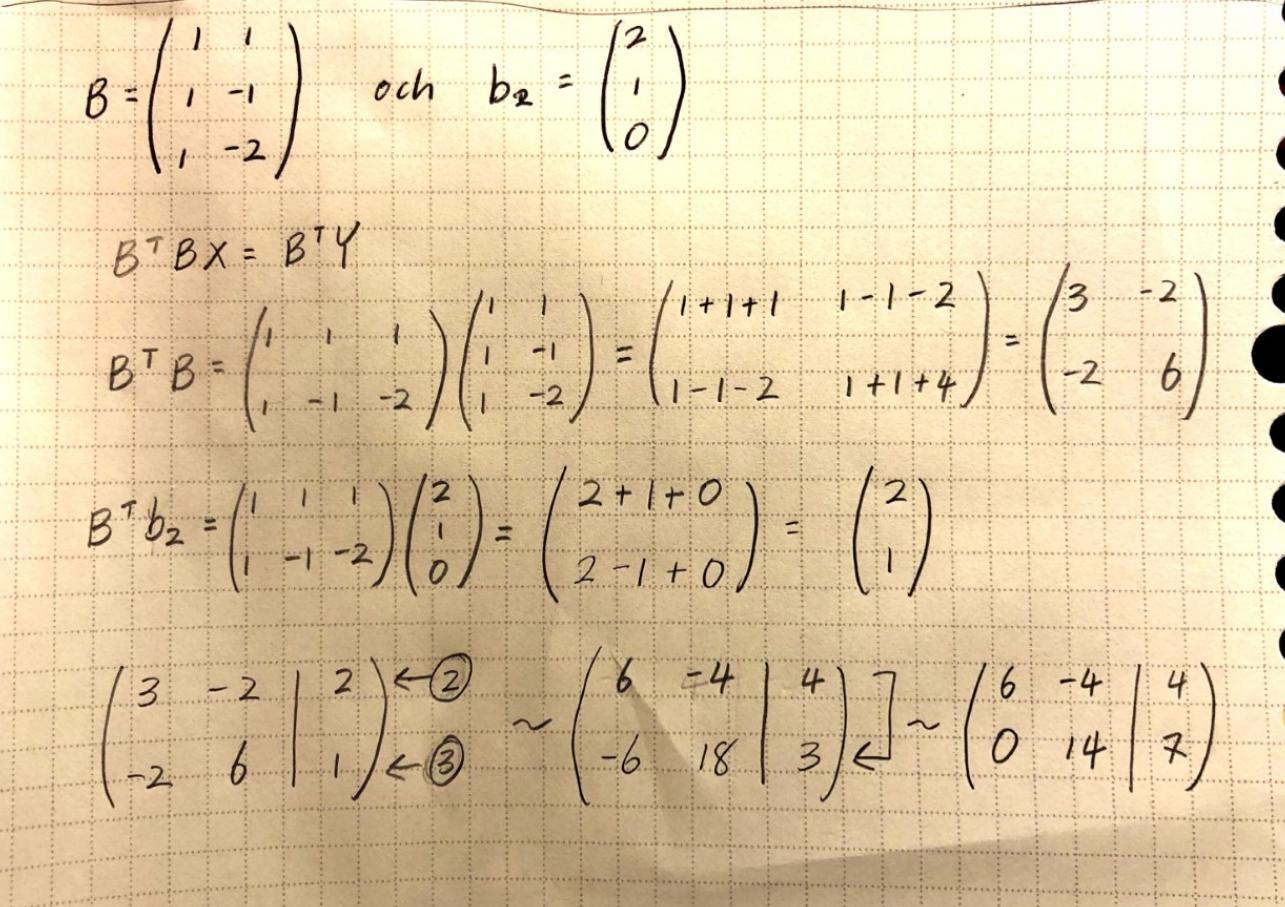 B = ( 1 1 ; 1 -1 ; 1 -2 ) och b₂ = ( 2 ; 1 ; 0 )
BᵀBX = BᵀY
BᵀB = ( 1 1 1 ; 1 -1 -2 ) ( 1 1 ; 1 -1 ; 1 -2 ) = ( 1+1+1 1-1-2 ; 1-1-2 1+1+4 ) = ( 3 -2 ; -2 6 )
Bᵀb₂ = ( 1 1 1 ; 1 -1 -2 ) ( 2 ; 1 ; 0 ) = ( 2+1+0 ; 2-1+0 ) = ( 2 ; 1 )
( 3 -2 | 2 ; -2 6 | 1 ) ←② ←③ ~ ( 6 -4 | 4 ; -6 18 | 3 ) ↵ ~ ( 6 -4 | 4 ; 0 14 | 7 )